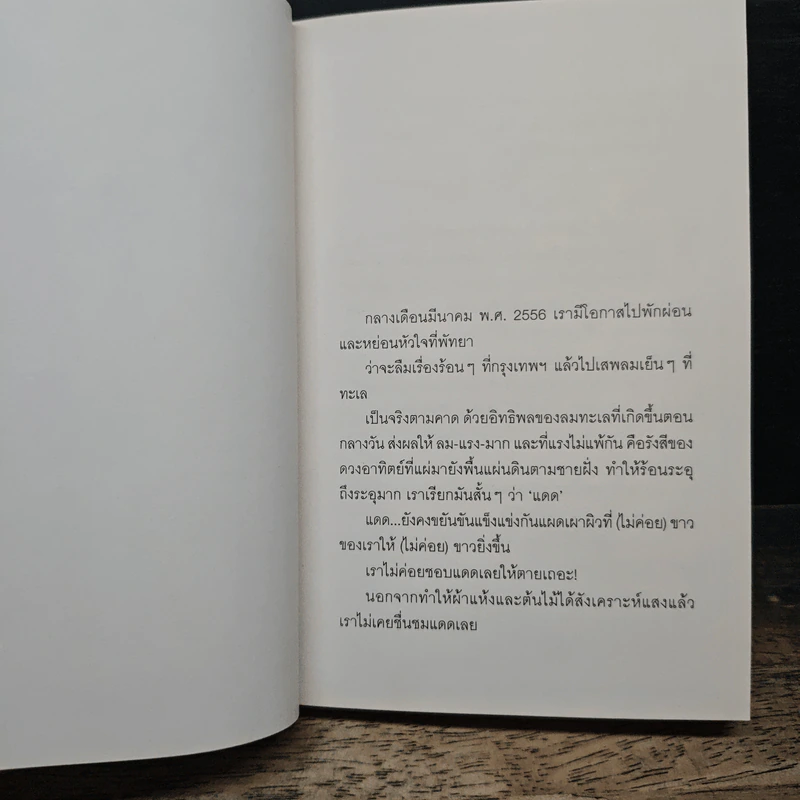 กลางเดือนมีนาคม พ.ศ. 2556 เรามีโอกาสไปพักผ่อน
และหย่อนหัวใจที่พัทยา
ว่าจะลืมเรื่องร้อนๆ ที่กรุงเทพฯ แล้วไปเสพลมเย็นๆ ที่
ทะเล
เป็นจริงตามคาด ด้วยอิทธิพลของลมทะเลที่เกิดขึ้นตอน
กลางวัน ส่งผลให้ ลม-แรง-มาก และที่แรงไม่แพ้กัน คือรังสีของ
ดวงอาทิตย์ที่แผ่มายังพื้นแผ่นดินตามชายฝั่ง ทำให้ร้อนระอุ
ถึงระอุมาก เราเรียกมันสั้นๆ ว่า ‘แดด’
แดด...ยังคงขยันขันแข็งแข่งกันแผดเผาผิวที่ (ไม่ค่อย) ขาว
ของเราให้ (ไม่ค่อย) ขาวยิ่งขึ้น
เราไม่ค่อยชอบแดดเลยให้ตายเถอะ!
นอกจากทำให้ผ้าแห้งและต้นไม้ได้สังเคราะห์แสงแล้ว
เราไม่เคยชื่นชมแดดเลย